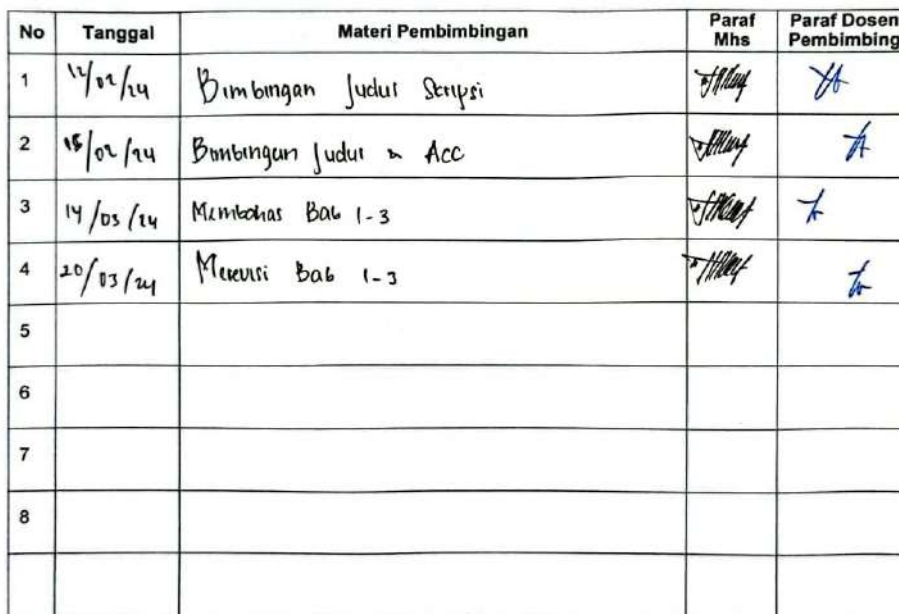 No Tanggal Materi Pembimbingan Paraf Mhs Paraf Dosen Pembimbing
1 12/02/24 Bimbingan Judul Skripsi
2 15/02/24 Bimbingan Judul & Acc
3 14/03/24 Membahas Bab 1-3
4 20/03/24 Merevisi Bab 1-3
5
6
7
8